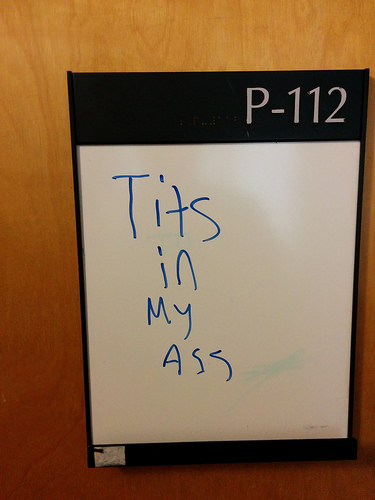 P-112
Tits
in
My
Ass